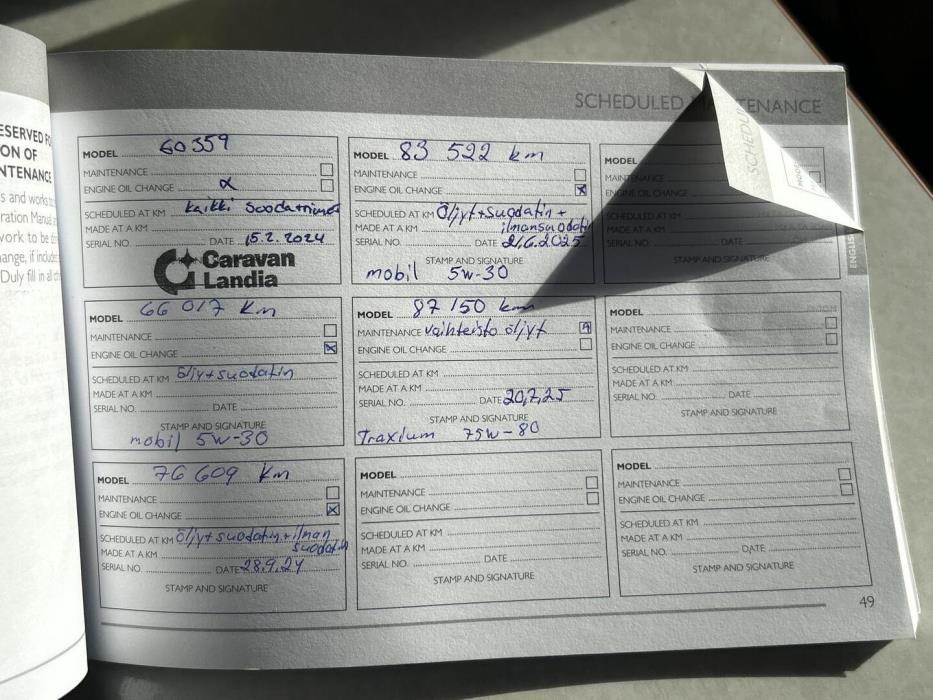 ESERVED FO
ON OF
NTENANCE
s and works
ration Manual
work to be
ange, if include
Duly fill in all
SCHEDULED M TENANCE
SCHEDU
ENGLISH
MODEL 60 359
MAINTENANCE
ENGINE OIL CHANGE
SCHEDULED AT KM kaikki
MADE AT A KM
SERIAL NO. DATE 15.2.2024
Caravan
Landia
MODEL 66 017 km
MAINTENANCE
ENGINE OIL CHANGE
SCHEDULED AT KM öljy+suodatin
MADE AT A KM
SERIAL NO. DATE
STAMP AND SIGNATURE
mobil 5w-30
MODEL 76 609 km
MAINTENANCE
ENGINE OIL CHANGE
SCHEDULED AT KM öljyt suodatin+ilman
MADE AT A KM suodatin
SERIAL NO. DATE 28.9.24
STAMP AND SIGNATURE
MODEL 83 522 km
MAINTENANCE
ENGINE OIL CHANGE
SCHEDULED AT KM Öljyt+suodatin+
MADE AT A KM ilmansuodatin
SERIAL NO. DATE 21.6.2025
STAMP AND SIGNATURE
mobil 5w-30
MODEL 87 150 km
MAINTENANCE vaihteisto öljyt
ENGINE OIL CHANGE
SCHEDULED AT KM
MADE AT A KM
SERIAL NO. DATE 20,7,25
STAMP AND SIGNATURE
Traxium 75w-80
MODEL
MAINTENANCE
ENGINE OIL CHANGE
SCHEDULED AT KM
MADE AT A KM
SERIAL NO. DATE
STAMP AND SIGNATURE
MODEL
MAINTENANCE
ENGINE OIL CHANGE
SCHEDULED AT KM
MADE AT A KM
SERIAL NO. DATE
STAMP AND SIGNATURE
MODEL
MAINTENANCE
ENGINE OIL CHANGE
SCHEDULED AT KM
MADE AT A KM
SERIAL NO. DATE
STAMP AND SIGNATURE
MODEL
MAINTENANCE
ENGINE OIL CHANGE
SCHEDULED AT KM
MADE AT A KM
SERIAL NO. DATE
STAMP AND SIGNATURE
49